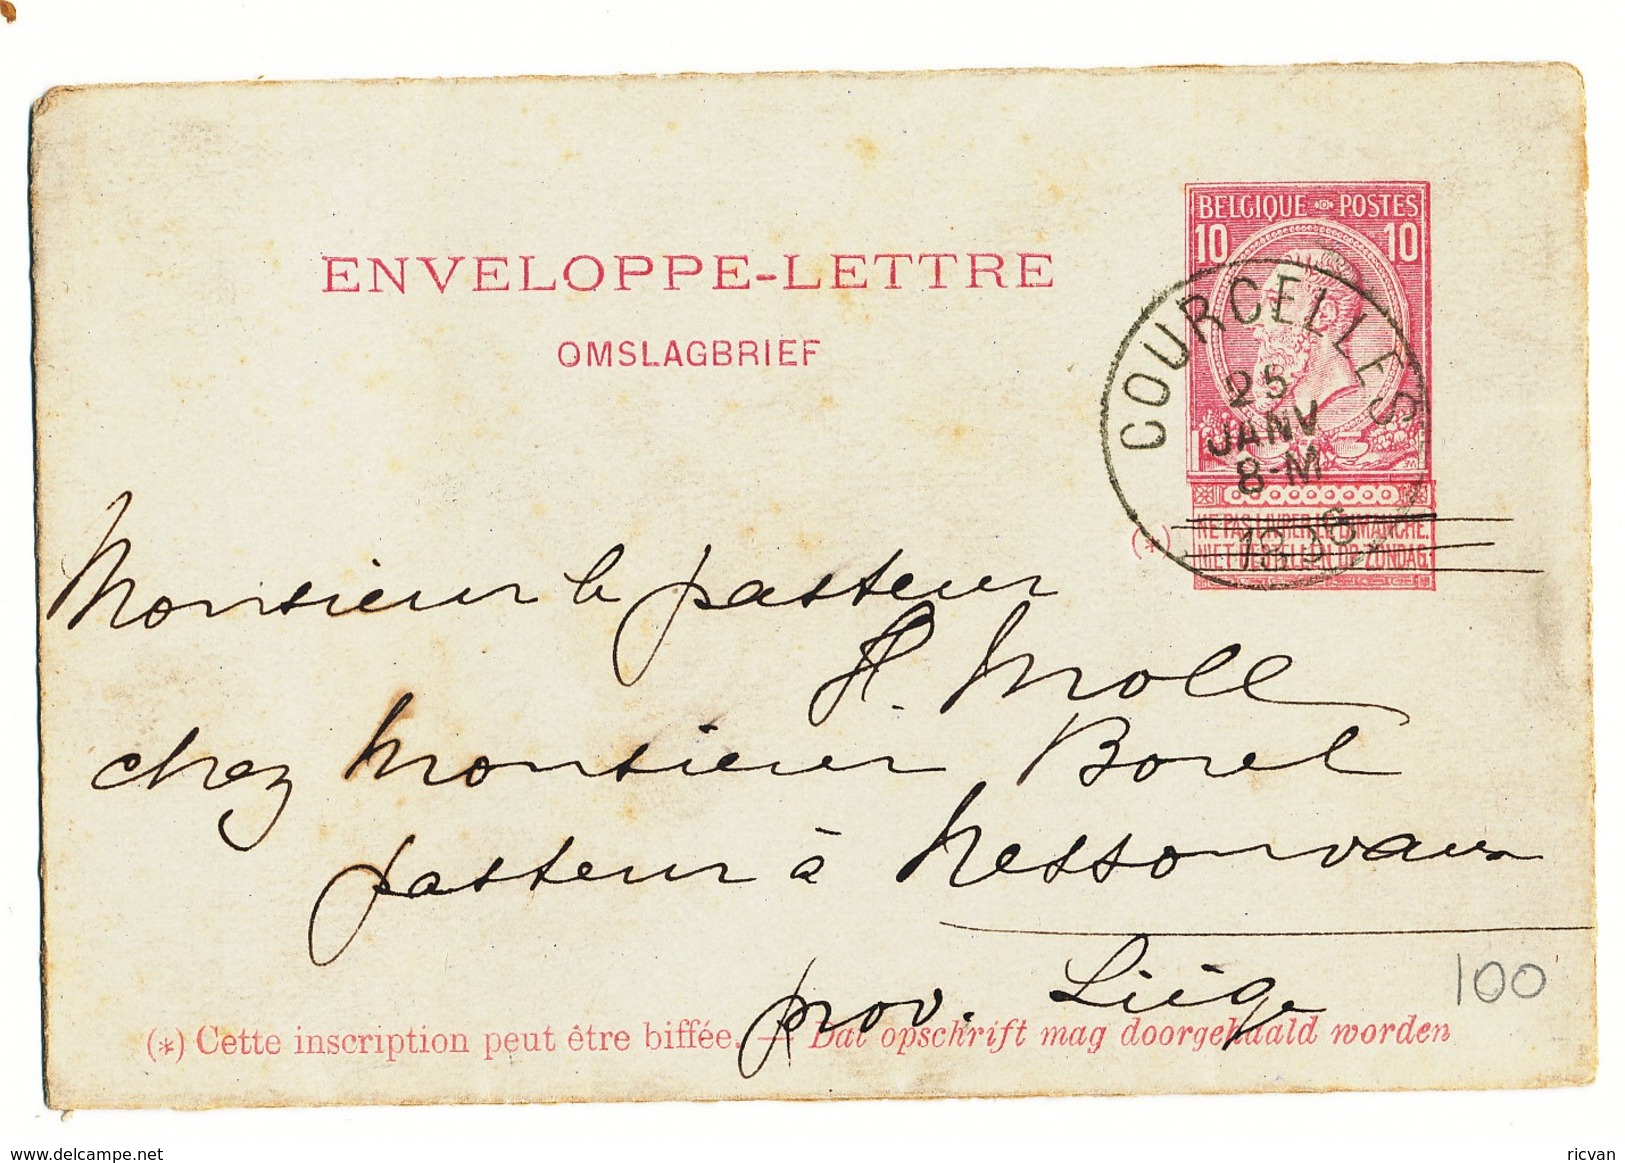 BELGIQUE POSTES
10 10
ENVELOPPE-LETTRE
OMSLAGBRIEF
COURCELLES
25
JANV
8-M
(*) NE PAS LIVRER LE DIMANCHE.
NIET BESTELLEN OP ZONDAG.
Monsieur le pasteur
A. Moll
chez Monsieur Borel
pasteur à Nessonvaux
prov. Liège
100
(*) Cette inscription peut être biffée. — Dat opschrift mag doorgehaald worden
www.delcampe.net
ricvan